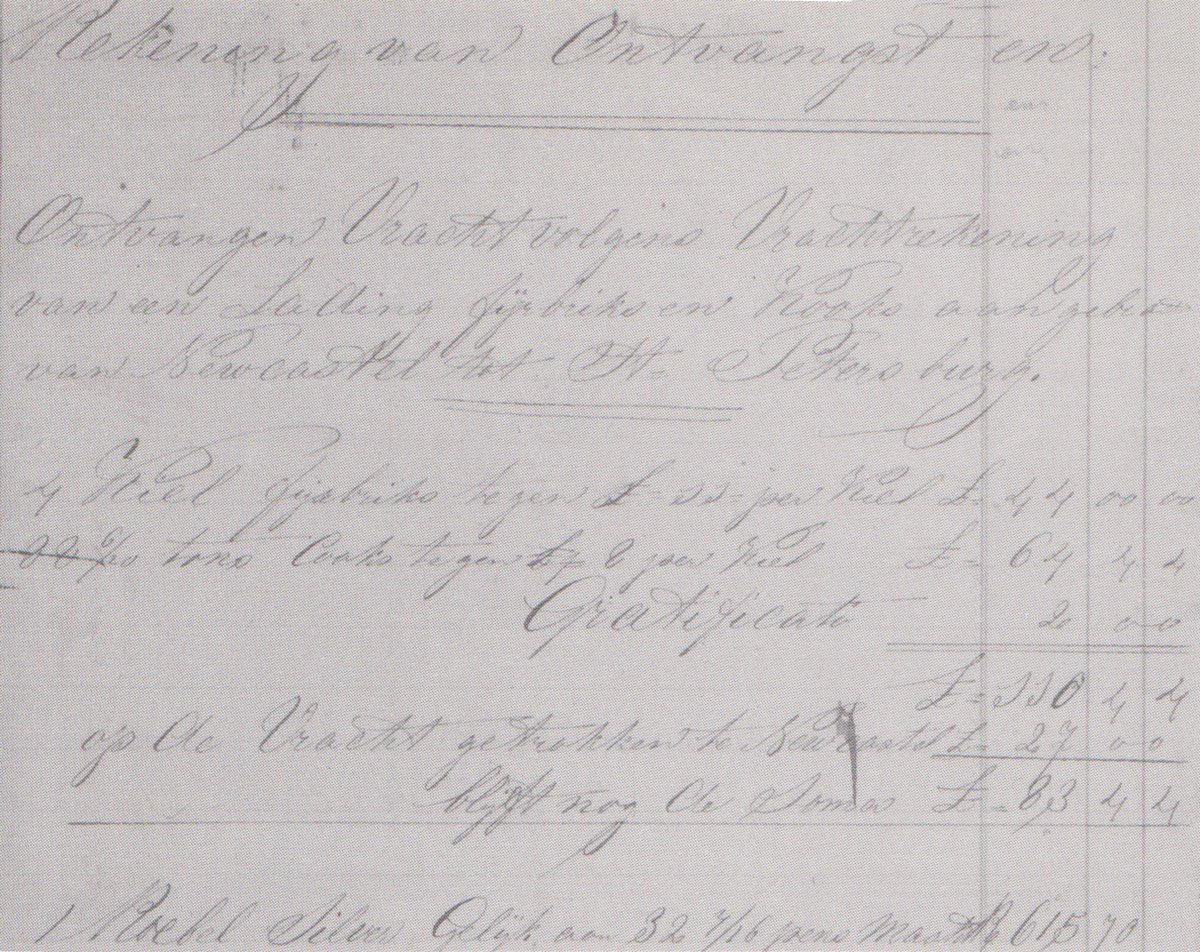 Rekening van Ontvangst en:
Ontvangen Vracht volgens Vrachtrekening
van een Lading fijrbriks en Kooks aangebra
van Newcastel tot St= Petersburg.
4 Kiel fijrbriks tegen £=11= per Kiel £= 44 00 00
tons Cooks tegen £7 8 per Kiel £= 64 4 4
Gratificatö 2 0 0
£= 110 4 4
op de Vracht getrokken te Newcastel £= 27 0 0
blijft nog de Somes £= 83 4 4
1 Roebel Silver Gelijk aan 32 7/16 pens Maakt 615 70